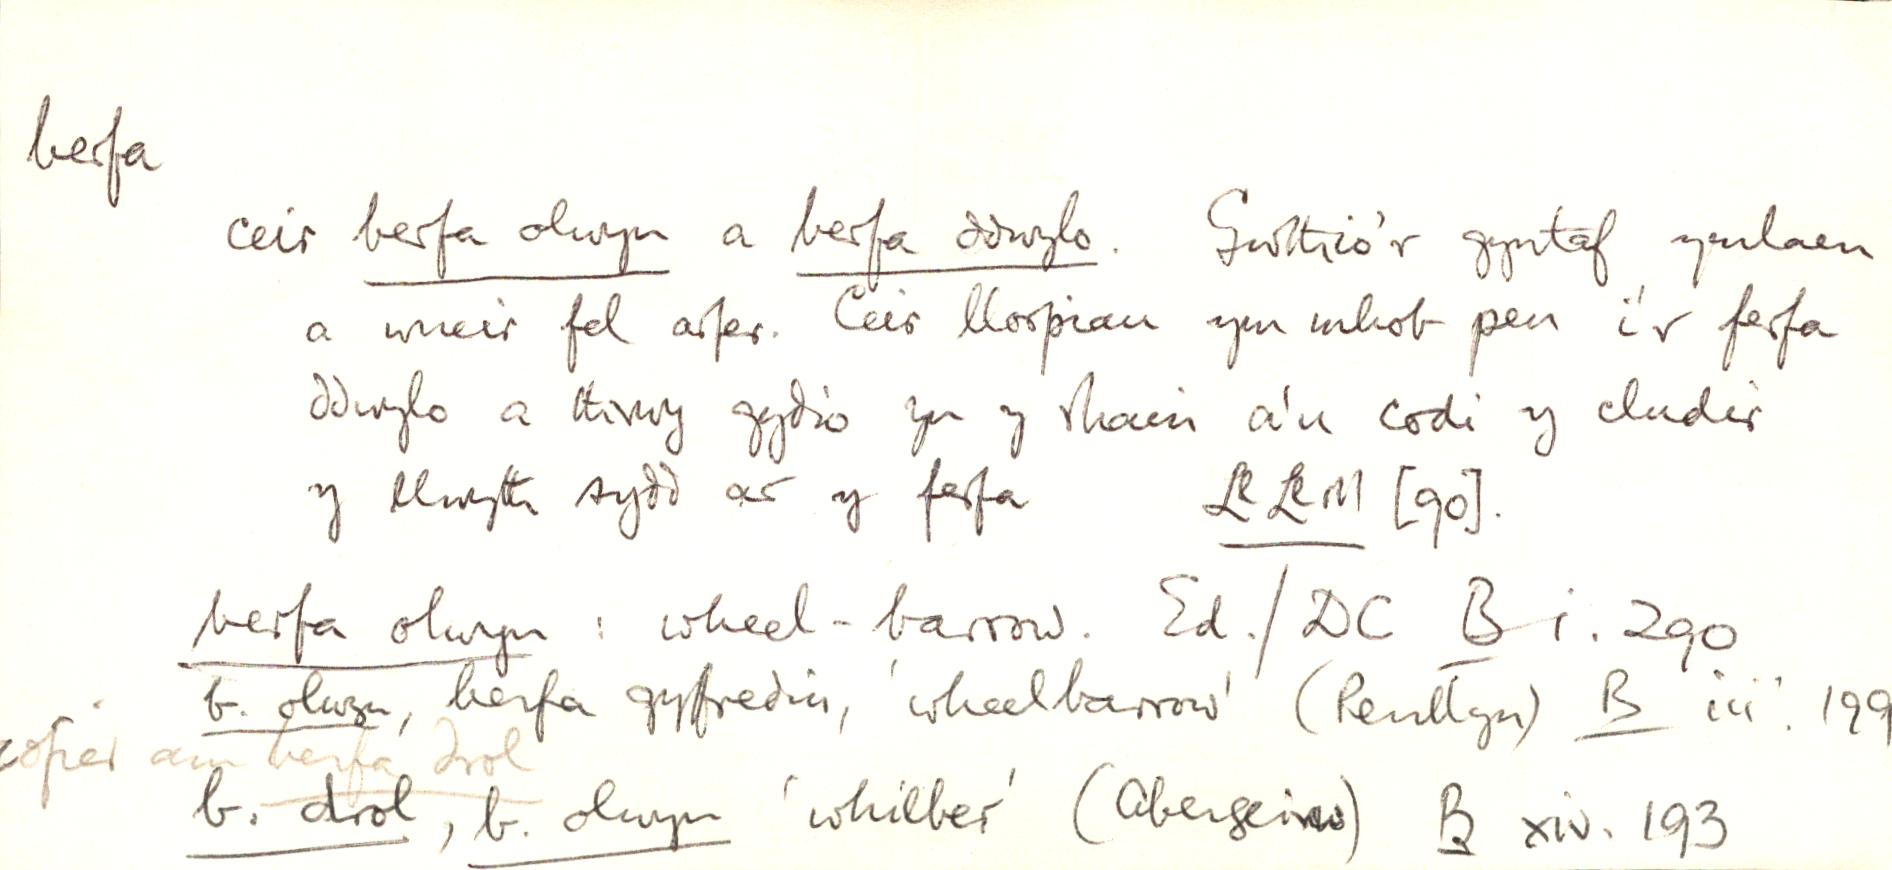 berfa
ceir berfa olwyn a berfa ddwylo. Gwthio'r gyntaf ymlaen
a wneir fel arfer. Ceir llorpiau ym mhob pen i'r ferfa
ddwylo a thrwy gydio yn y rhain a'u codi y cludir
y llwyth sydd ar y ferfa LlLlM [90].
berfa olwyn : wheel-barrow. Ed./DC B i. 290
b. olwyn, berfa gyffredin, 'wheelbarrow' (Penllyn) B iii. 199
copier am berfa drol
b. drol, b. olwyn 'whilber' (Abergeirw) B xiv. 193